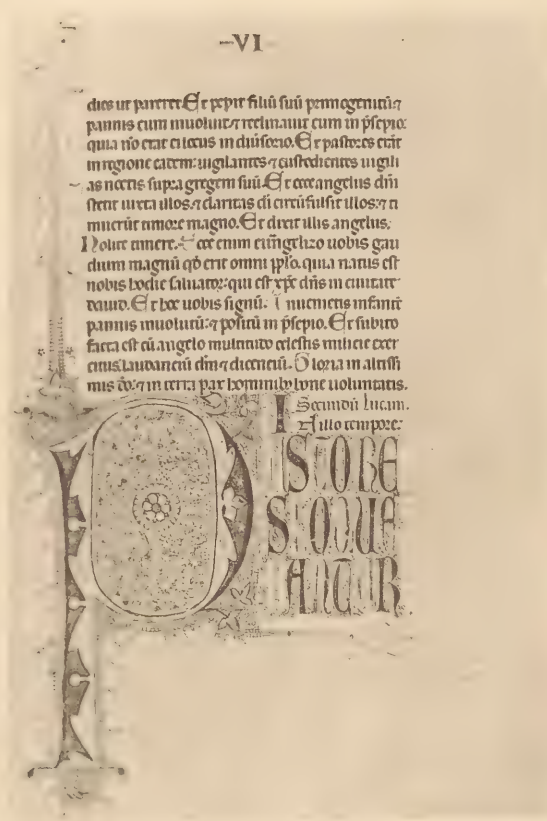 VI
dies ut pareret. Et peperit filiũ suũ primogenitũ ⁊
pannis eum inuoluit ⁊ reclinauit eum in p̃sepio:
quia nõ erat ei locus in diũsorio. Et pastores erãt
in regione eadem: uigilantes ⁊ custodientes uigili
as noctis supra gregem suũ. Et ecce angelus dñi
stetit iuxta illos: ⁊ claritas di circũfulsit illos: ⁊ ti
muerũt timore magno. Et dixit illis angelus:
Nolite timere. Ecce enim euãgelizo uobis gau
dium magnũ qð erit omni pplo. quia natus est
nobis hodie saluator: qui est xp̃c dñs in ciuitate
dauid. Et hoc uobis signũ. Inuenietis infantẽ
pannis inuolutũ: ⁊ positũ in p̃sepio. Et subito
facta est cũ angelo multitudo celestis milicie exer
citus laudanciũ dm̃ ⁊ dicenciũ. Gloria in altissi
mis do: ⁊ in terra pax hominibȝ bone uoluntatis.
Secundũ Lucam.
I illo tempore:
PASTORE
S LOQUE
BANTUR